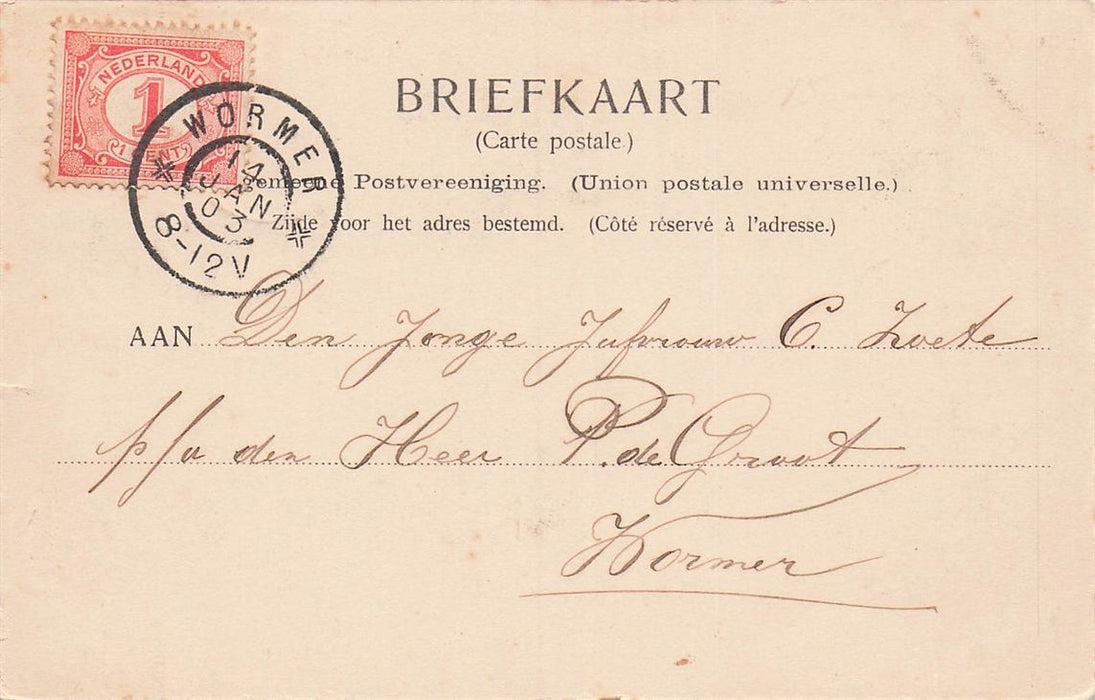 NEDERLAND
1
1 CENT
WORMER
14
JAN
03
8-12V
BRIEFKAART
(Carte postale.)
Postvereeniging. (Union postale universelle.)
Zijde voor het adres bestemd. (Côté réservé à l'adresse.)
AAN Den Jonge Jufvrouw C. Zoete
p/a den Heer P. de Groot
Wormer